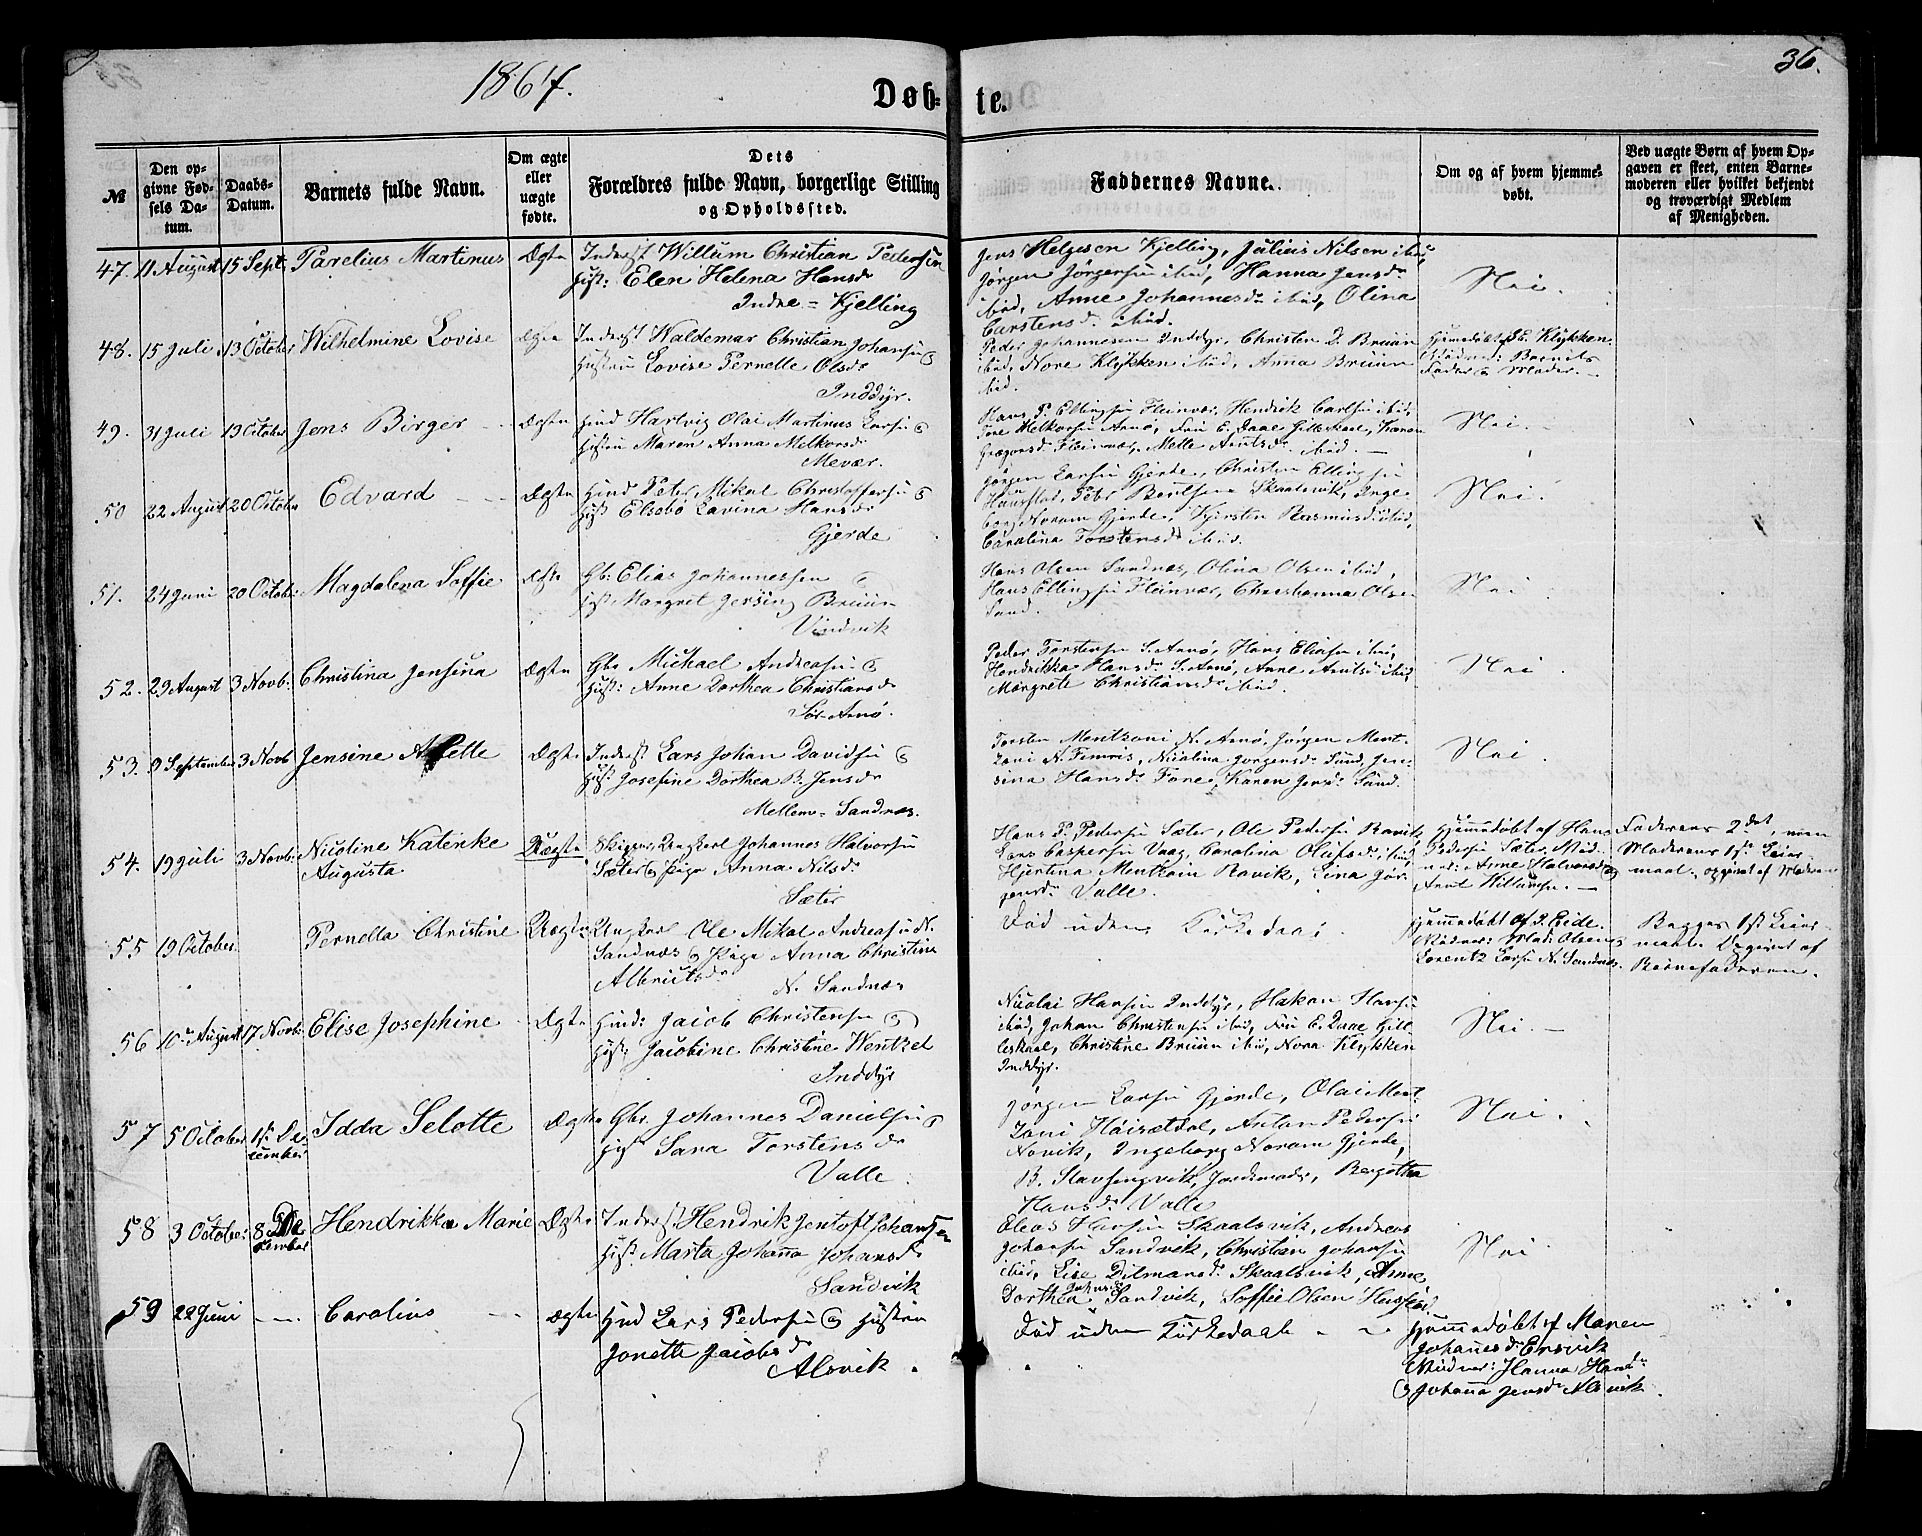 1867.
Døb-te.
36.
№
Den op-
givne Fød-
sels Da-
tum.
Daabs-
Datum.
Barnets fulde Navn.
Om ægte
eller
uægte
fødte.
Dets
Forældres fulde Navn, borgerlige Stilling
og Opholdssted.
Faddernes Navne.
Om og af hvem hjemme-
døbt.
Ved uægte Børn af hvem Op-
gaven er skeet, enten Barne-
moderen eller hvilket bekjendt
og troværdigt Medlem
af Menigheden.
47. 11 August 15 Sept. Parelius Martinus Ægte
Inderst Willum Christian Pedersen
Hust: Elen Helena Hansdr
Indre = Kjelling
Jens Helgesen Kjelling, Julius Nilsen ibid,
Jørgen Jørgensen ibid, Hanna Jensdr
ibid, Anne Johannesdr ibid, Olina
Carstensdr. ibid.
Nei.
48. 15 Juli 13 October Wilhelmine Lovise Ægte
Inderst Waldemar Christian Johansen &
Hustru Lovise Pernelle Olsdr
Inddyr.
Peder Johannesen Inddyr, Christen D. Bruun
ibid, Nore Klykken ibid, Anna Bruun
ibid.
Hjemmedøbt af E. Klykken.
Vidner: Barnets
Fader & Moder. -
49. 31 Juli 19 October Jens Birger Ægte
Hmd Hartvig Olai Martinus Larsen &
Hustru Maren Anna Melkorsdr
Mevær.
Hans P. Ellingsen Fleinvær, Hendrik Carlsen ibid,
Tore Melkorsen Arnø, Fru E. Daae Gilleskaal, Karen
Grægersdr Fleinvær, Melle Arntsdr ibid. -
Nei. -
50 22 August 20 October Edvard Ægte
Hmd Peter Mikal Christoffersen &
Hust Elsebø Lavina Hansdr
Gjerde
Jørgen Larsen Gjerde, Christen Ellingsen
Haugstad, Peter Bentsen Skaalsvik, Inge-
borg Noram Gjerde, Kjersten Rasmusdr ibid,
Carolina Torstensdr ibid.
Nei.
51. 24 Juni 20 October Magdalena Soffie Ægte
Gbr: Elias Johannessen &
Hust Margret Jersing Bruun
Vindvik
Hans Olsen Sandnæs, Olina Olsen ibid,
Hans Ellingsen Fleinvær, Christianna Olsen
Sund.
Nei.
52. 29 August 3 Novb. Christina Jensina Ægte
Gbr Michael Andreasen &
Hust: Anne Dorthea Christiansdr
Sør-Arnø.
Peder Torstensen S. Arnø, Hans Eliasen ibid,
Hendrikka Hansdr S. Arnø, Anne Arntsdr ibid,
Margrete Christiansdr ibid.
Nei.
53. 9 September 3 Novb Jensine Ægte
Inderst Lars Johan Davidsen &
Hust Josefine Dorthea B. Jensdr
Mellem = Sandnæs
Torsten Mentzoni N. Arnø, Jørgen Ment-
zoni A. Femris, Nicolina Jørgensdr Sund, Jen-
sina Hansdr Fore, Karen Jensdr Sund.
Nei.
54. 19 Juli 3 Novb. Nicoline Katinke
Augusta Uægte
Skipper, Ungkarl Johannes Halvorsen
Sæter & Pige Anna Nilsdr
Sæter
Hans P. Pedersen Sæter, Ole Pedersen Ravik
Lars Caspersen Vaag, Carolina Olufsdr ibid,
Hjertina Mentzoni Ravik, Lina Jør-
gensdr Valle.
Hjemmdøbt af Hans
Pedersen Sæter. Vid-
ner: Anne Halvorsdr &
Arnt Willumsen. -
Faderens 2det, men
Moderens 1ste Leier-
maal, opgivet af Moderen
55 19 October. Pernella Christine Uægte
Ungkarl Ole Mikal Andreasen N.
Sandnæs & Pige Anna Christine
Albrictsdr
N. Sandnæs
Død uden Kirkedaab.
Hjemmedøbt af J. Eide.
Vidner: Mad: Olsen &
Lorentz Larsen N. Sandnæs.
Begges 1ste Leier-
maal. Opgivet af
Barnefaderen.
56 10 August 17 Novb. Elise Josephine Ægte
Hmd: Jacob Christensen &
Hust: Jacobine Christine Wentzel
Inddyr
Nicolai Hansen Inddyr, Hakon Hansen
ibid, Johan Christensen ibid, Fru E. Daae Gil-
leskaal, Christine Bruun ibid, Nora Klykken
Inddyr.
Nei. -
57 5 October 1ste De-
cember Idda Selotte Ægte
Gbr. Johannes Danielsen &
Hust Sara Torstensdr
Valle.
Jørgen Larsen Gjerde, Olai Ment-
zoni Høisætdal, Anton Pedersen
Novik, Ingeborg Noram Gjerde,
B. Stavsengvik, Jordemoder, Bergitta
Hansdr Valle
Nei.
58 3 October 8 De-
cember Hendrikka Marie Ægte
Inderst Hendrik Jentoft Johansen
Hust. Marta Johanna Johansdr
Sandvik
Elias Hansen Skaalsvik, Andreas
Johansen Sandvik, Christian Johansen
ibid, Lise Dilmansdr Skaalsvik, Anne
Dorthea Johnsdr Sandvik, Soffie Olsen
Nei.
59 22 Juni Carolius Ægte
Hmd Lars Pedersen & Hustru
Jonette Jacobsdr
Alsvik.
Død uden Kirkedaab
Hjemmedøbt af Maren
Johannesdr Ersvik
Vidner: Hanna Hansdr
& Johanna Jensdr Alsvik.